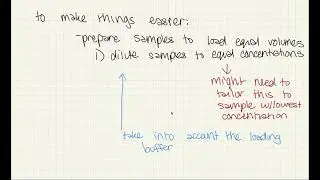 to make things easier:
-prepare samples to load equal volumes
1) dilute samples to equal concentrations
might need to
tailor this to
sample w/lowest
concentration
take into account the loading
buffer